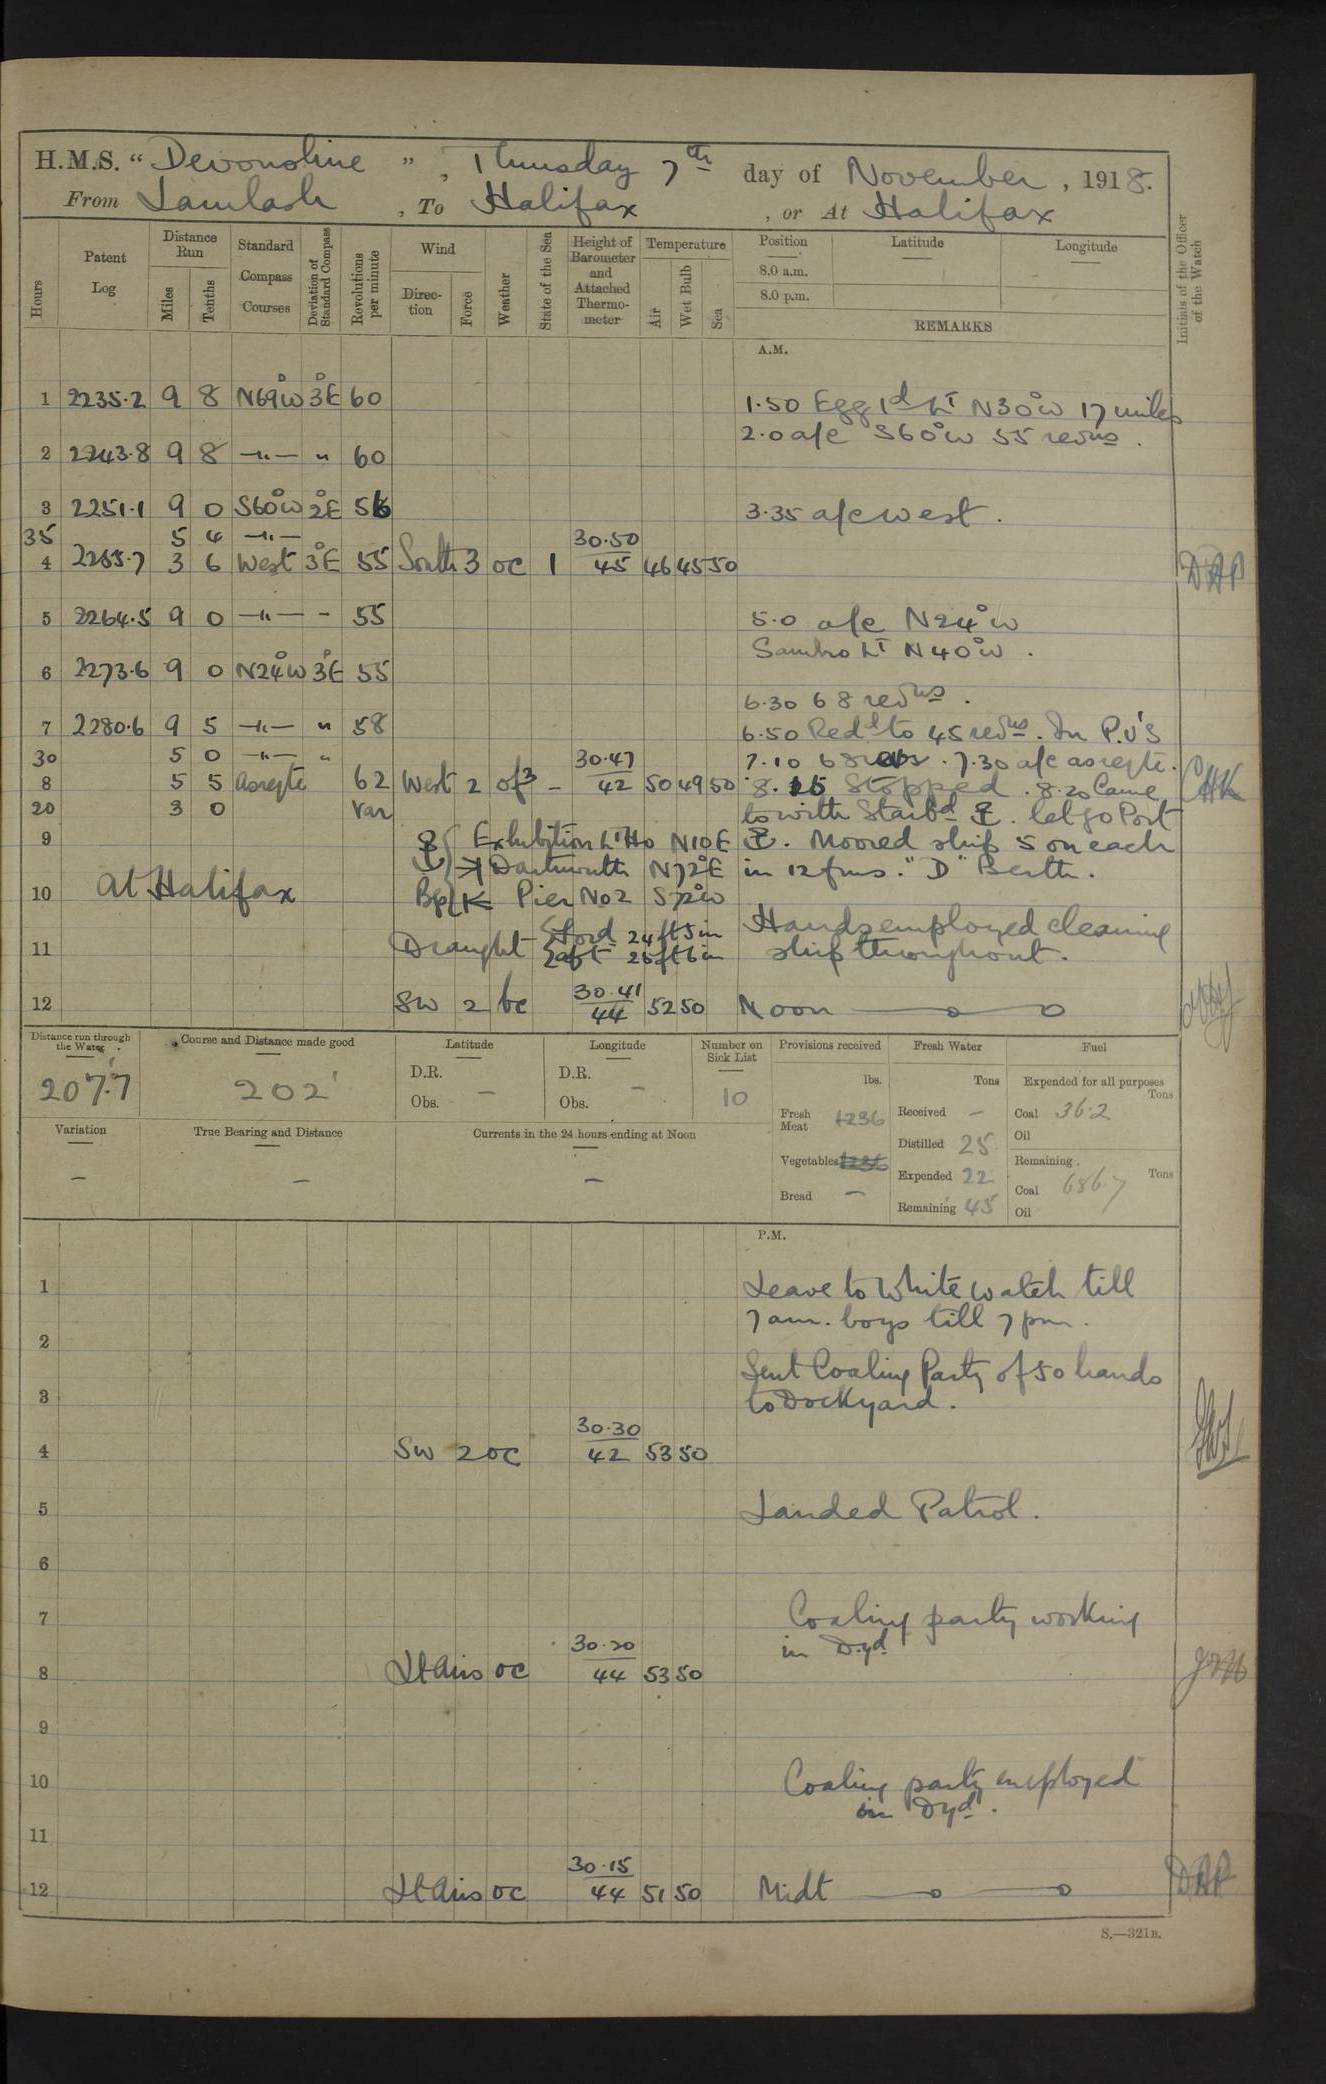 H.M.S. "Devonshire", Thursday 7th day of November, 1918.
From Lamlash, To Halifax, or At Halifax
Hours
Patent Log
Distance Run
Miles
Tenths
Standard Compass Courses
Deviation of Standard Compass
Revolutions per minute
Wind
Direction
Force
Weather
State of the Sea
Height of Barometer and Attached Thermometer
Temperature
Air
Wet Bulb
Sea
Position
Latitude
Longitude
8.0 a.m.
8.0 p.m.
REMARKS
Initials of the Officer of the Watch
A.M.
1 2235.2 9 8 N69°W 3°E 60
1.50 Egg Id Lt N30°W 17 miles
2.0 a/c S60°W 55 revns.
2 2243.8 9 8 —"— " 60
3 2251.1 9 0 S60°W 2°E 56 3.35 a/c West.
35 5 4 —"— 30.50
4 2255.7 3 6 West 3°E 55 South 3 oc 1 45 46 45 50 DAP
5 2264.5 9 0 —"— - 55 5.0 a/c N24°W
Sambro Lt N40°W.
6 2273.6 9 0 N24°W 3°E 55
6.30 68 revns.
7 2280.6 9 5 —"— " 58 6.50 Redd to 45 revns. In P.V's
30 5 0 —"— " 30.47 7.10 68 revs. 7.30 a/c as reqte.
8 5 5 As reqte 62 West 2 of3 - 42 50 49 50 8.15 Stopped. 8.20 Came
20 3 0 Var to with Starbd ⚓. let go Port
9 ⚓ { Exhibition Lt Ho N10E ⚓. Moored ship 5 on each
Dartmouth N72°E in 12 fms. "D" Berth.
10 At Halifax Bp { Pier No 2 S72°W
11 Draught { Ford 24ft 5in Hands employed cleaning
{ aft 25ft 6in ship throughout.
12 SW 2 bc 30.41 44 52 50 Noon
Distance run through the Water
207.7
Course and Distance made good
202'
Latitude
D.R.
Obs. —
Longitude
D.R.
Obs. —
Number on Sick List
10
Provisions received
lbs.
Fresh Meat 1236
Vegetables 1236
Bread —
Fresh Water
Tons
Received —
Distilled 25
Expended 22
Remaining 45
Fuel
Expended for all purposes
Tons
Coal 36.2
Oil
Remaining.
Tons
Coal 686.7
Oil
Variation
—
True Bearing and Distance
—
Currents in the 24 hours ending at Noon
—
P.M.
1 Leave to White watch till
7 am. boys till 7 pm.
2
Sent Coaling Party of 50 hands
3 to Dockyard.
30.30
4 SW 2 oc 42 53 50
5 Landed Patrol.
6
7 Coaling party working
30.20 in Dyd.
8 Lt Airs oc 44 53 50
9
10 Coaling party employed
in Dyd.
11
30.15
12 Lt Airs oc 44 51 50 Midt DAP
S.—321B.